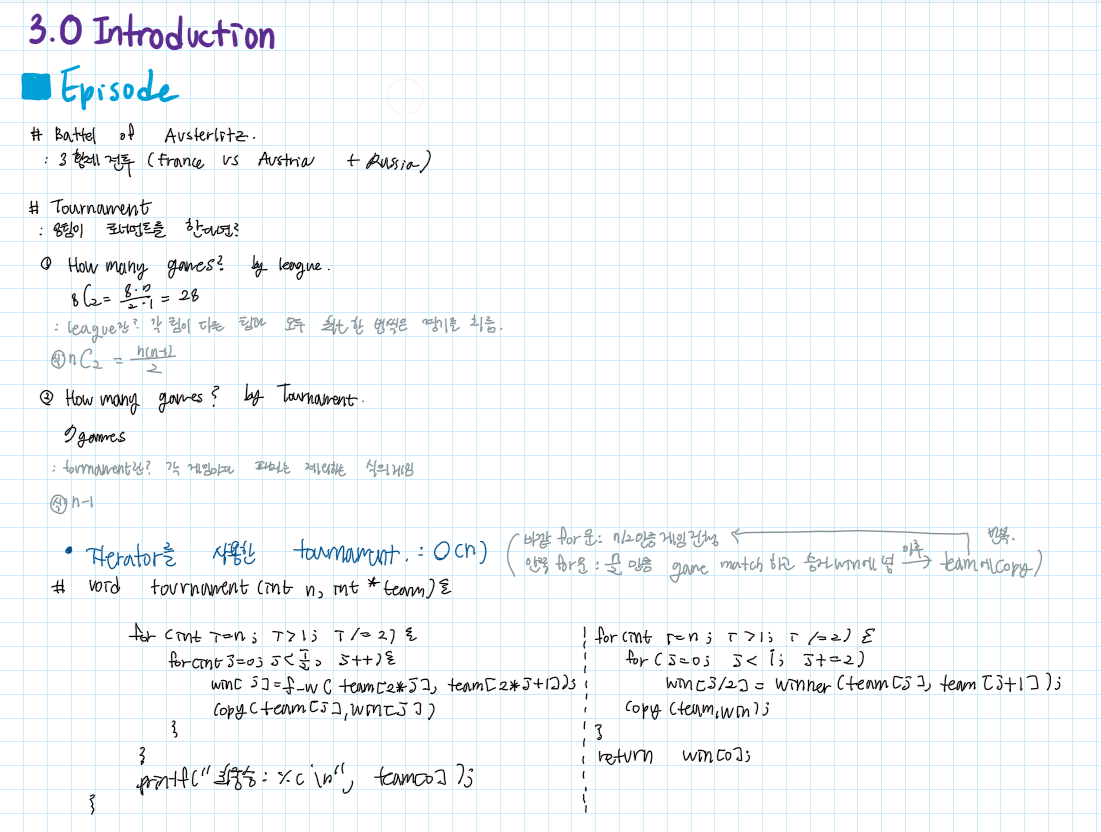 3.0 Introduction
Episode
# Battel of Austerlitz.
: 3 황제 전투 (France vs Austria + Russia)
# Tournament
: 8팀이 토너먼트를 한다면?
① How many games? by league.
8C2 = 8·7/2·1 = 28
: league란? 각 팀이 다른 팀과 모두 최소 한 번씩은 경기를 치름.
식) nC2 = n(n-1)/2
② How many games? by Tournament.
7 games
: tornament란? 각 게임마다 패자는 제외하는 식의 게임
식) n-1
• Iterator를 사용한 tournament. : O(n)
( 바깥 for문: n/2만큼 게임 진행 ← 반복.
안쪽 for문: 만큼 game match 하고 승자 win에 넣 이후 → team에 copy )
# void tournament (int n, int * team) {
for (int i=n; i>1; i/=2) {
for(int j=0; j<i/2; j++) {
win[j]=f_w( team[2*j], team[2*j+1]);
copy(team[j], win[j])
}
}
printf(" 최종승: %c \n", team[0] );
}
for (int i=n; i>1; i/=2) {
for (j=0; j<i; j+=2)
win[j/2] = winner (team[j], team[j+1] );
copy (team, win);
}
return win[0];